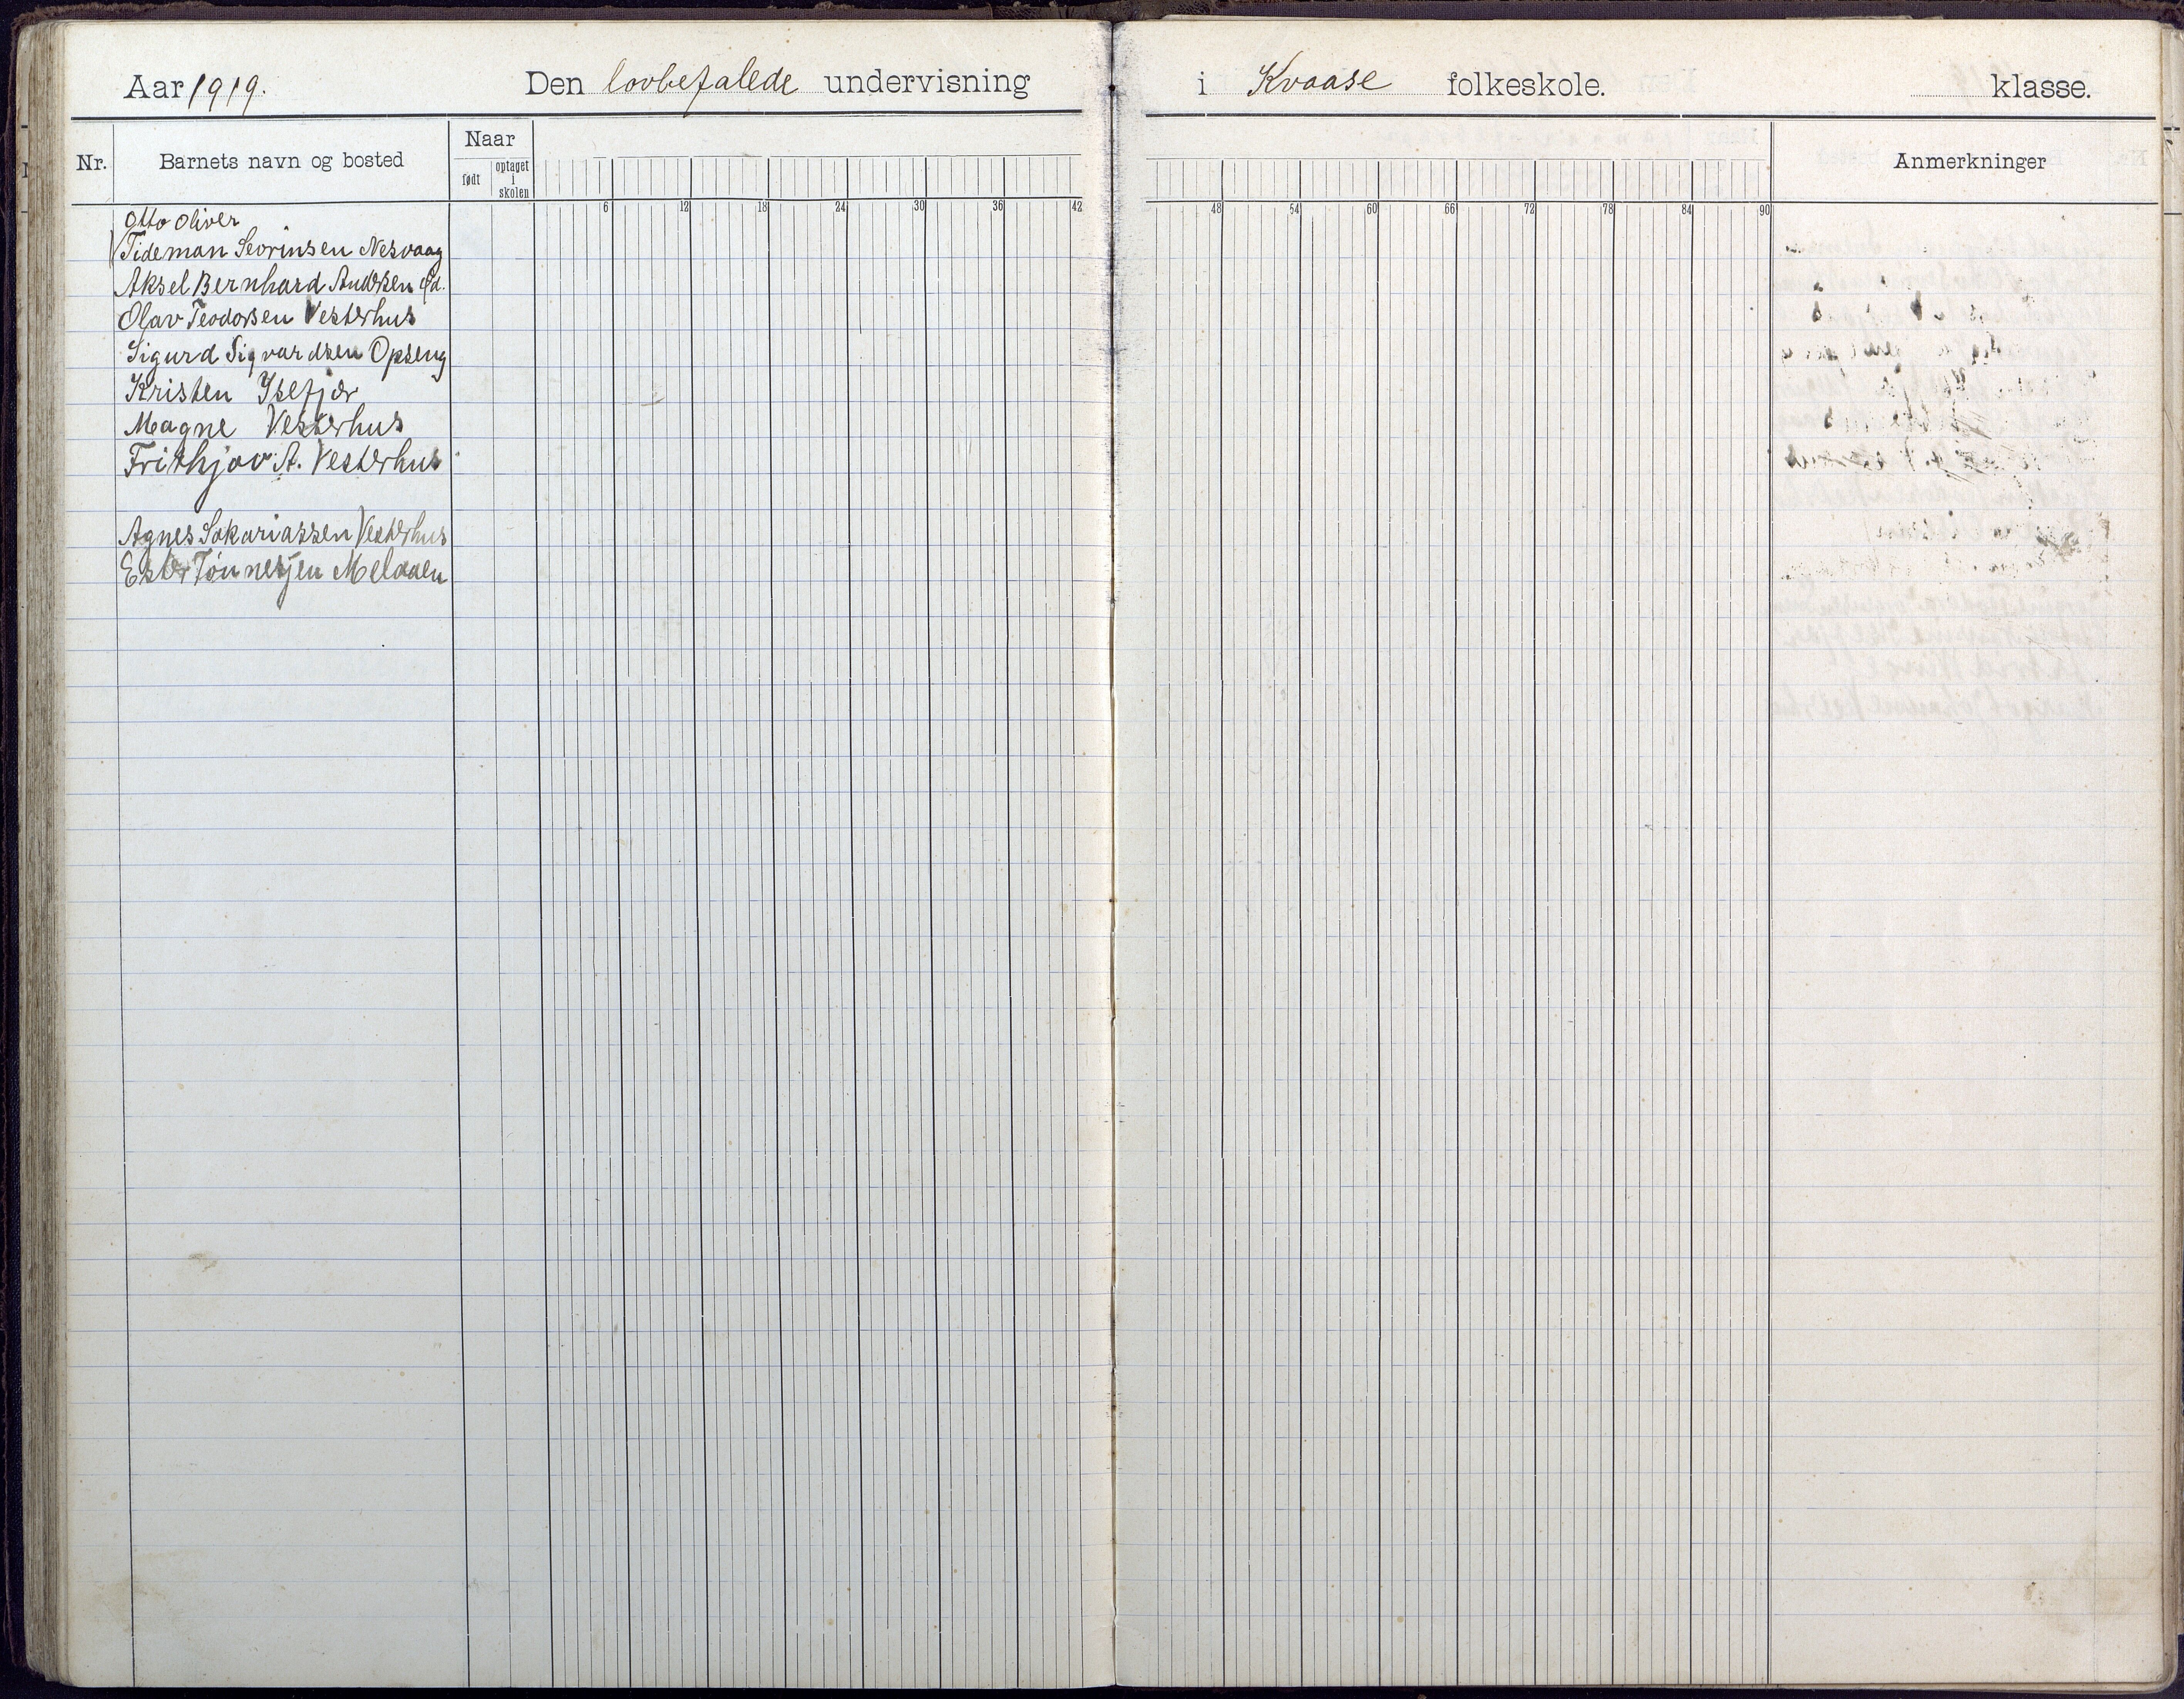 Aar 1919. Den lovbefalede undervisning i Kvaase folkeskole. klasse.
Nr. Barnets navn og bosted Naar født optaget i skolen Anmerkninger
6 12 18 24 30 36 42 48 54 60 66 72 78 84 90
Otto Oliver
Tideman Sevrinsen Nesvaag
Aksel Bernhard Andersen
Olav Teodorsen Vesterhus
Sigurd Sigvardsen Opseng
Kristen Ysefjær
Magne Vesterhus
Frithjov A. Vesterhus
Agnes Sakariassen Vesterhus
Ester Tønnesjen Melaaen